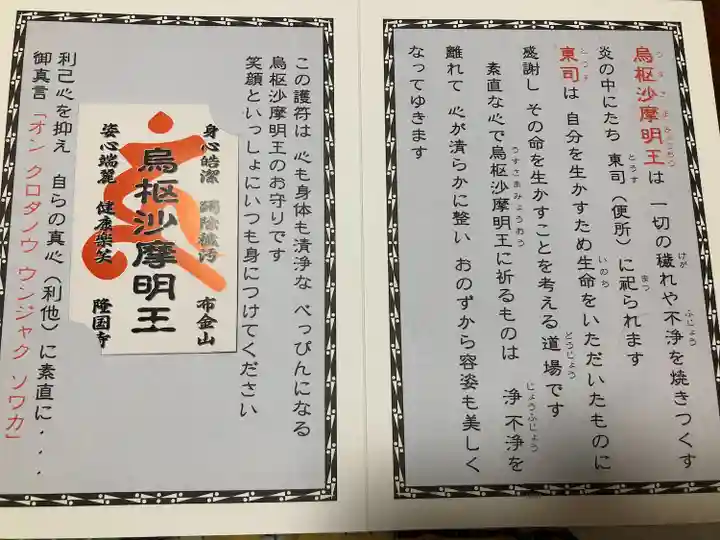 烏枢沙摩明王は 一切の穢れや不浄を焼きつくす
炎の中にたち 東司（便所）に祀られます
東司は 自分を生かすため生命をいただいたものに
感謝し その命を生かすことを考える道場です
素直な心で烏枢沙摩明王に祈るものは 浄不浄を
離れて 心が清らかに整い おのずから容姿も美しく
なってゆきます
この護符は 心も身体も清浄な べっぴんになる
烏枢沙摩明王のお守りです
笑顔といっしょにいつも身につけてください
身心皓潔 蠲除穢汚 布金山
烏枢沙摩明王
姿心端麗 健康柴笑 隆国寺
利己心を抑え 自らの真心（利他）に素直に・・・
御真言「オン クロダノウ ウンジャク ソワカ」